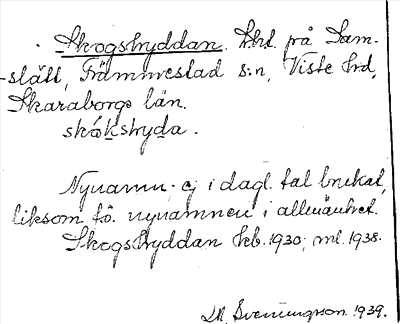 Skogshyddan. Lht. på Sam-
slätt, Främmestad s:n, Viste hd,
Skaraborgs län.
skókshyda.
Nynamn; ej i dagl. tal brukat,
liksom fö. nynamnen i allmänhet.
Skogshyddan kb. 1930; ml. 1938.
Svenungson. 1939.